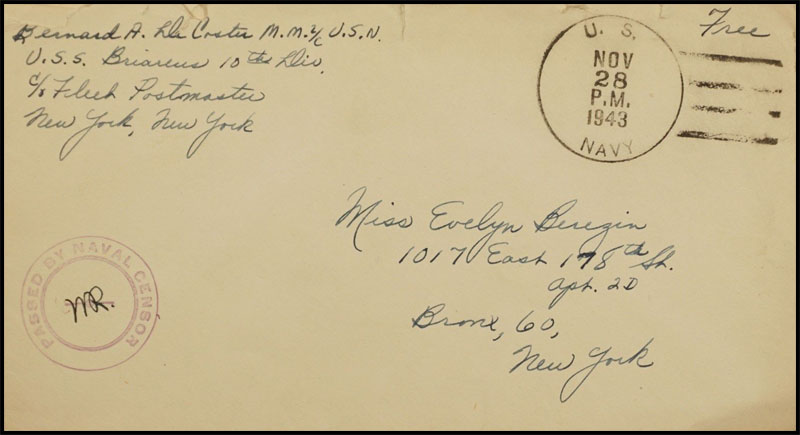 Bernard A. De Coster M.M.2/c U.S.N.
U.S.S. Briareus 10th Div.
c/o Fleet Postmaster
New York, New York
U. S.
NOV
28
P.M.
1943
NAVY
Free
Miss Evelyn Beregin
1017 East 178th St.
Apt. 2D
Bronx, 60,
New York
PASSED BY NAVAL CENSOR
WR.